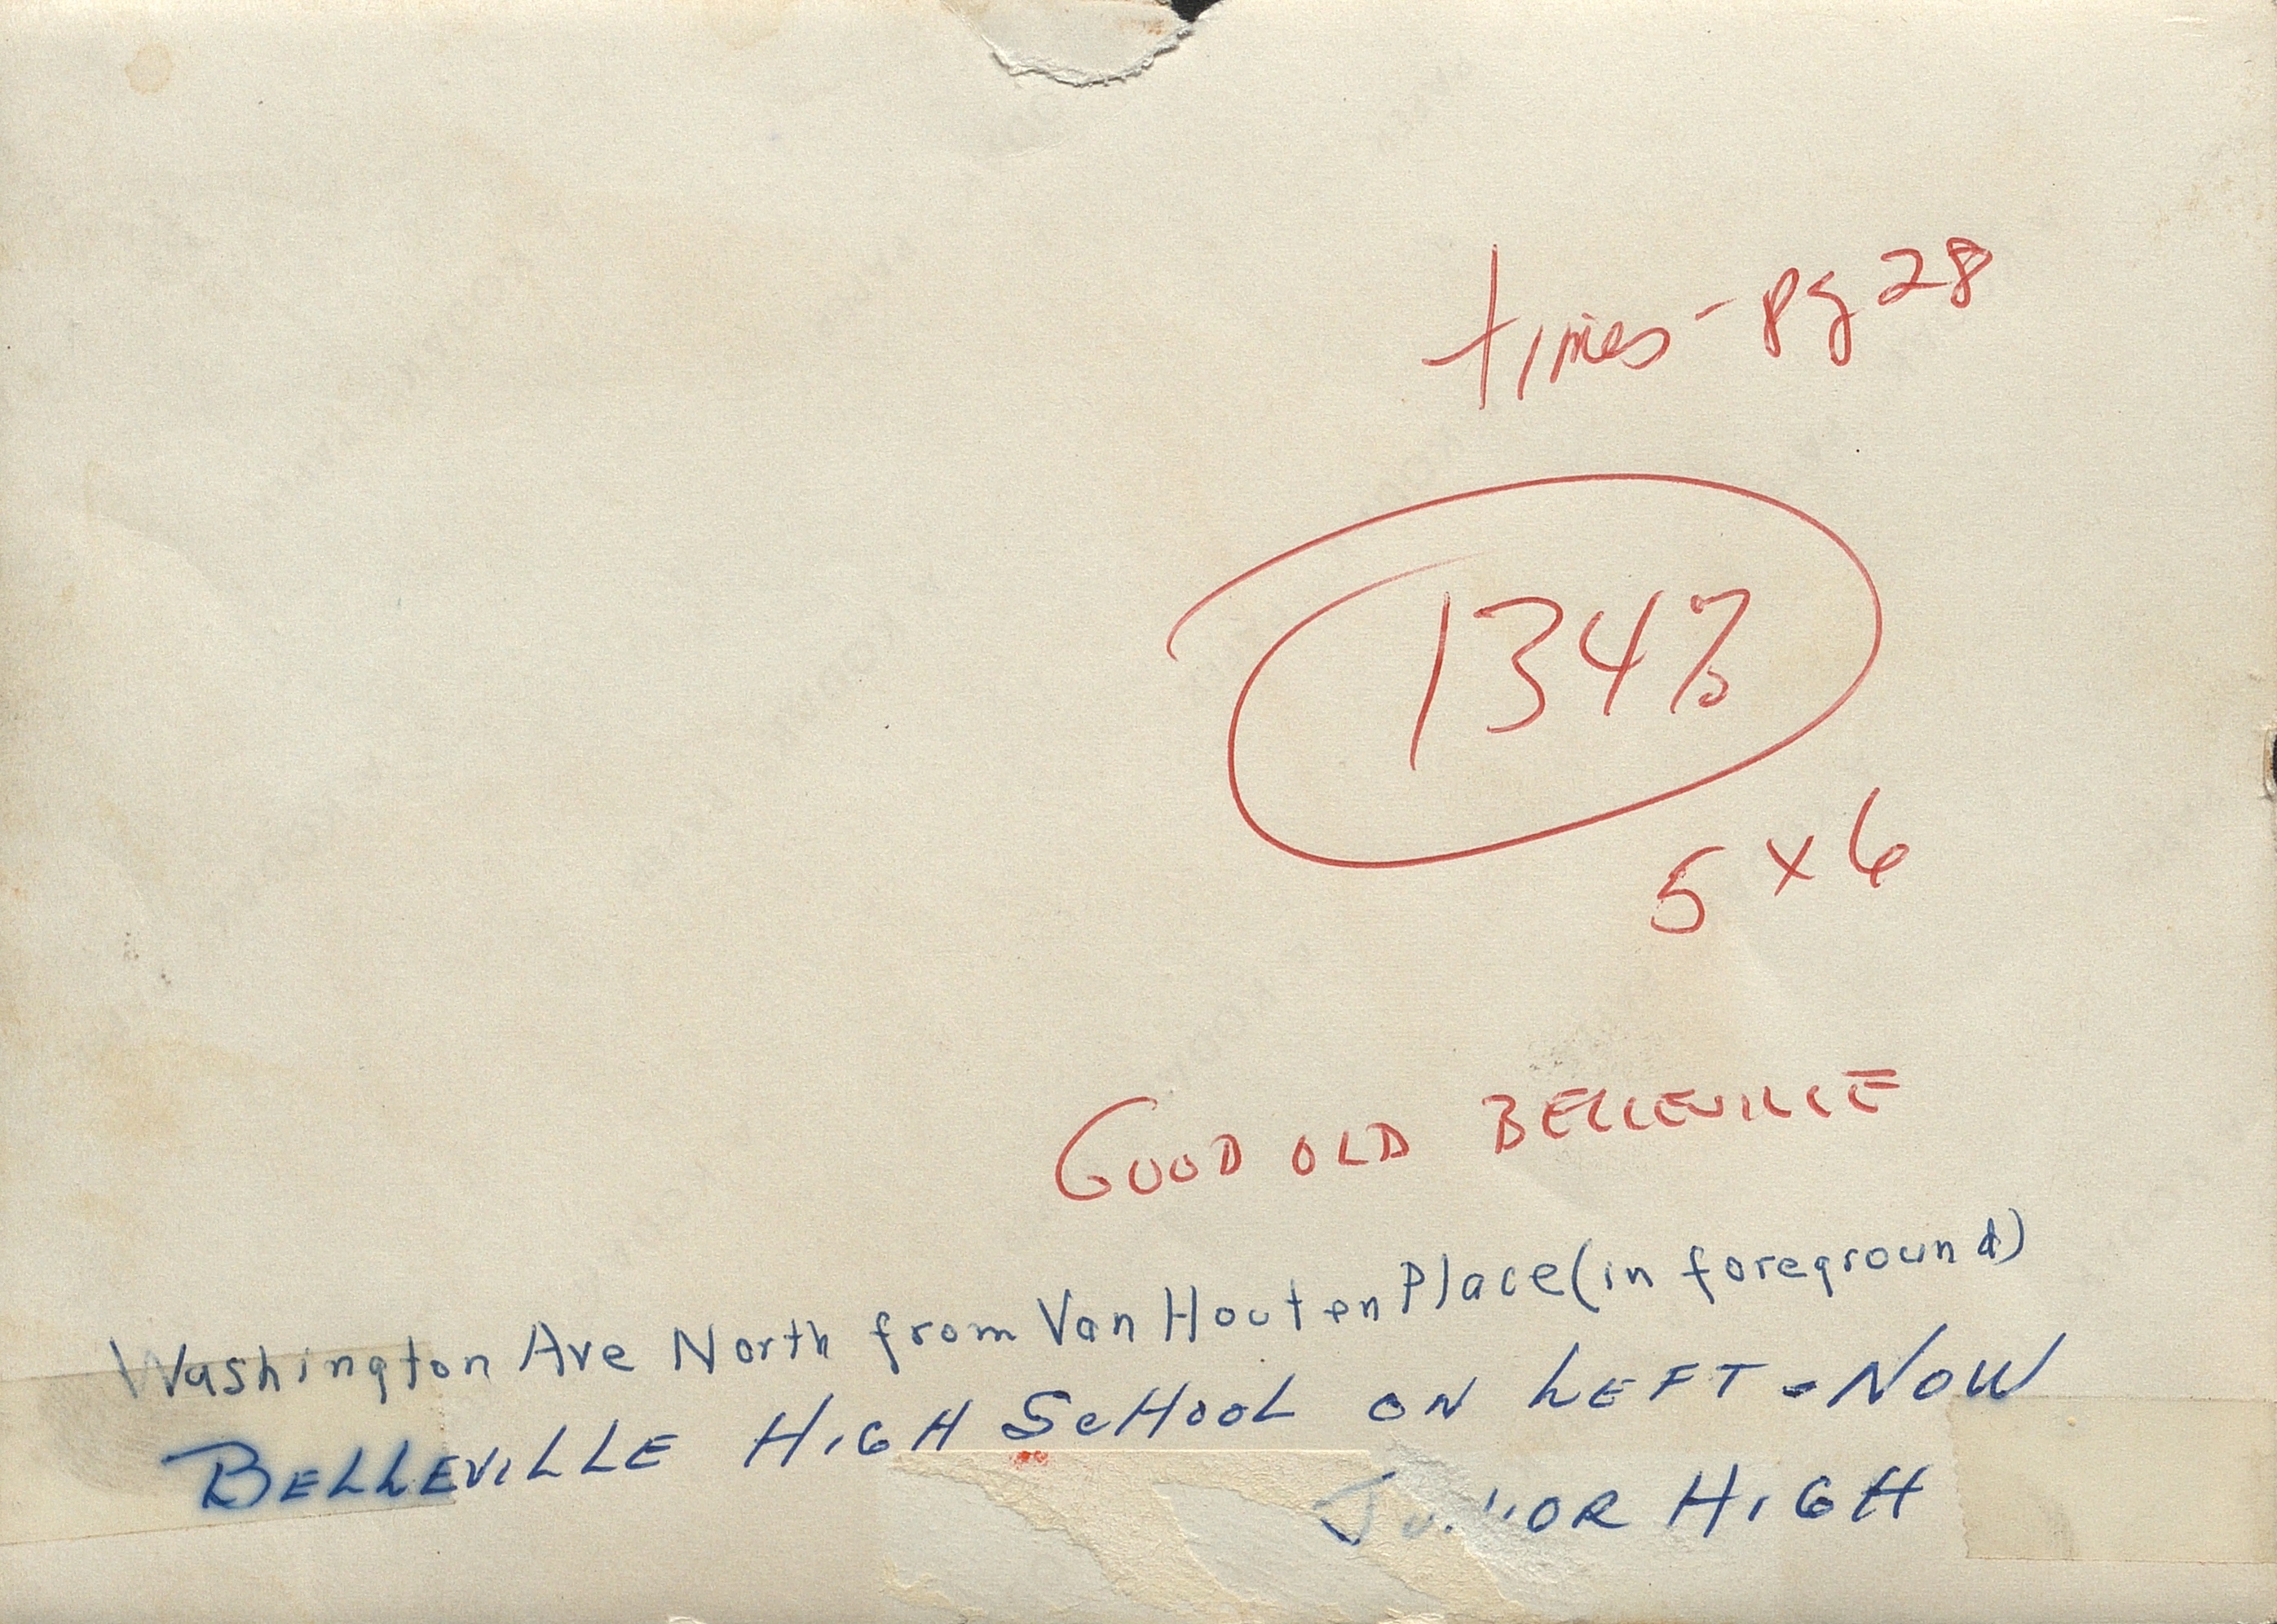 times - pg 28
134%
5 x 6
GOOD OLD BELLEVILLE
Washington Ave North from Van Houten Place (in foreground)
BELLEVILLE HIGH SCHOOL ON LEFT - NOW
JUNIOR HIGH